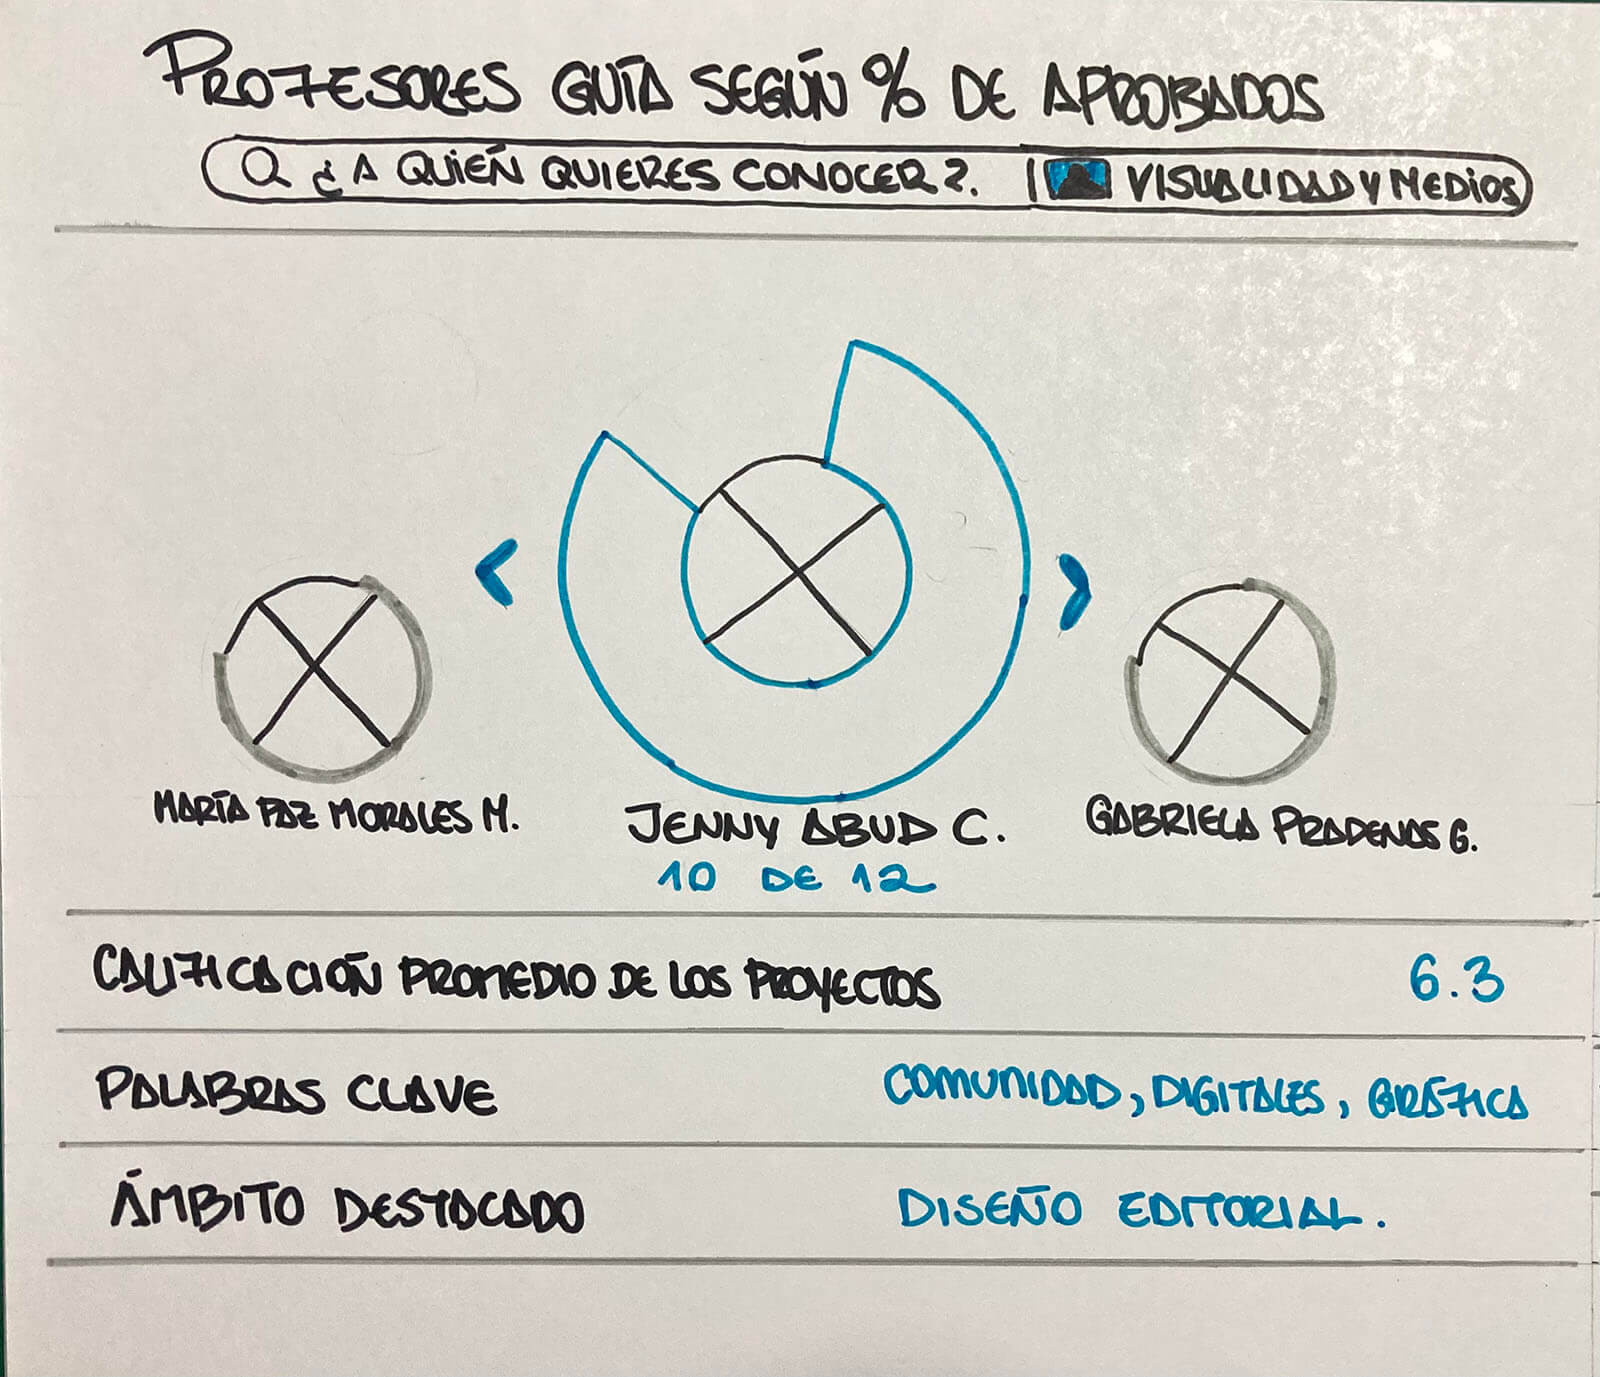 PROFESORES GUÍA SEGÚN % DE APROBADOS
¿A QUIÉN QUIERES CONOCER?. | VISUALIDAD Y MEDIOS
MARÍA PAZ MORALES M.
JENNY ABUD C.
GABRIELA PRADENAS G.
10 DE 12
CALIFICACIÓN PROMEDIO DE LOS PROYECTOS 6.3
PALABRAS CLAVE COMUNIDAD, DIGITALES, GRÁFICA
ÁMBITO DESTACADO DISEÑO EDITORIAL.